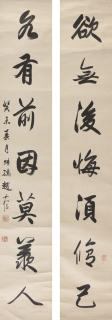 欲無後悔須脩己
各有前因莫羨人
癸未夏月